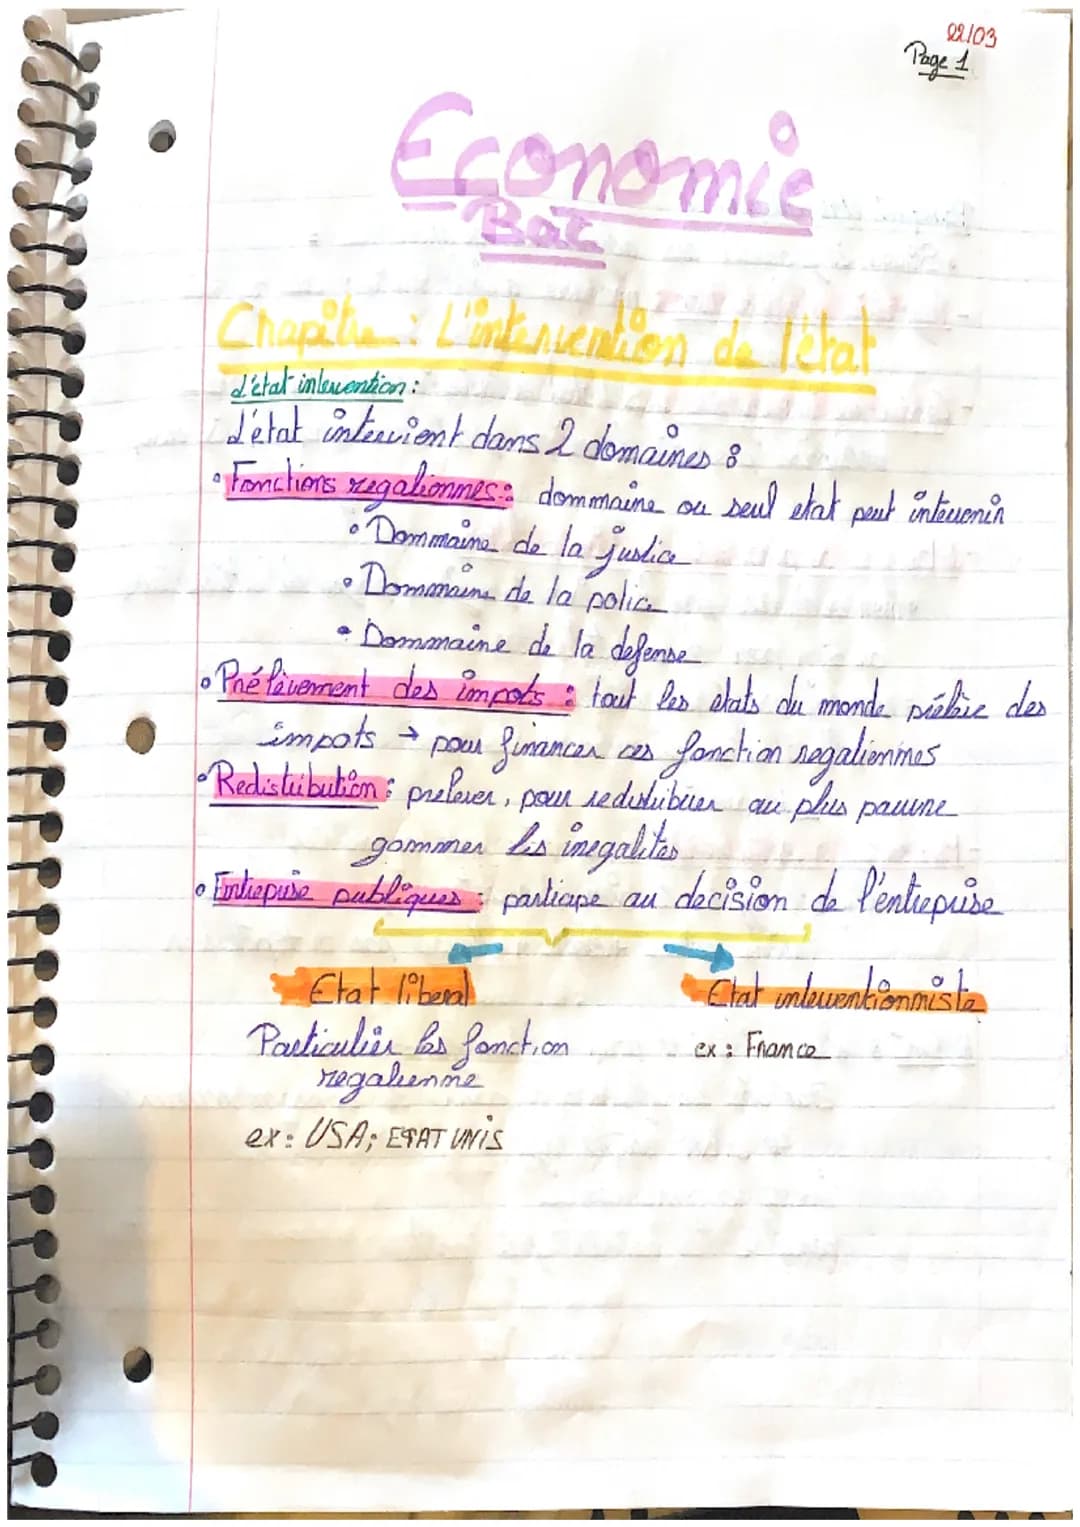 22/03
Page 1
Economie
Bac
Chapitre : L'intervention de l'état
L'état intervention :
L'état intervient dans 2 domaines :
• Fonctions regalionnes : dommaine ou seul etat peut intervenir
• Dommaine de la justice
• Dommaine de la police
• Dommaine de la defense
• Prélèvement des impots : tout les etats du monde prélève des
impots → pour financer ces fonction regaliennes
• Redistribution : prelever, pour redistribuer au plus pauvre
gommer les inegalites
• Entreprise publiques : participe au decision de l'entreprise
Etat liberal
Etat interventionniste
Particulier les fonction
regalienne
ex : France
ex : USA; ETAT UNIS